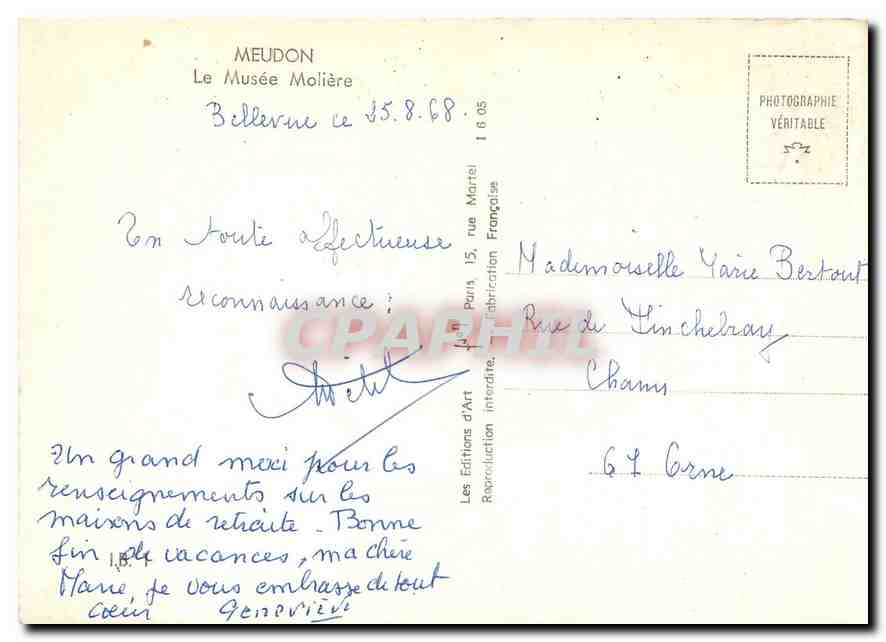 MEUDON
Le Musée Molière
Bellevue ce 25.8.68.
En toute affectueuse
reconnaissance :
Un grand merci pour les
renseignements sur les
maisons de retraite. Bonne
fin de vacances, ma chère
Marie, je vous embrasse de tout
cœur Geneviève
Les Editions d'Art Paris, 15, rue Martel 1605
Reproduction interdite. Fabrication Française
PHOTOGRAPHIE
VÉRITABLE
Mademoiselle Marie Bertout
Rue de Tinchebray
61 Orne
CPAPHIL